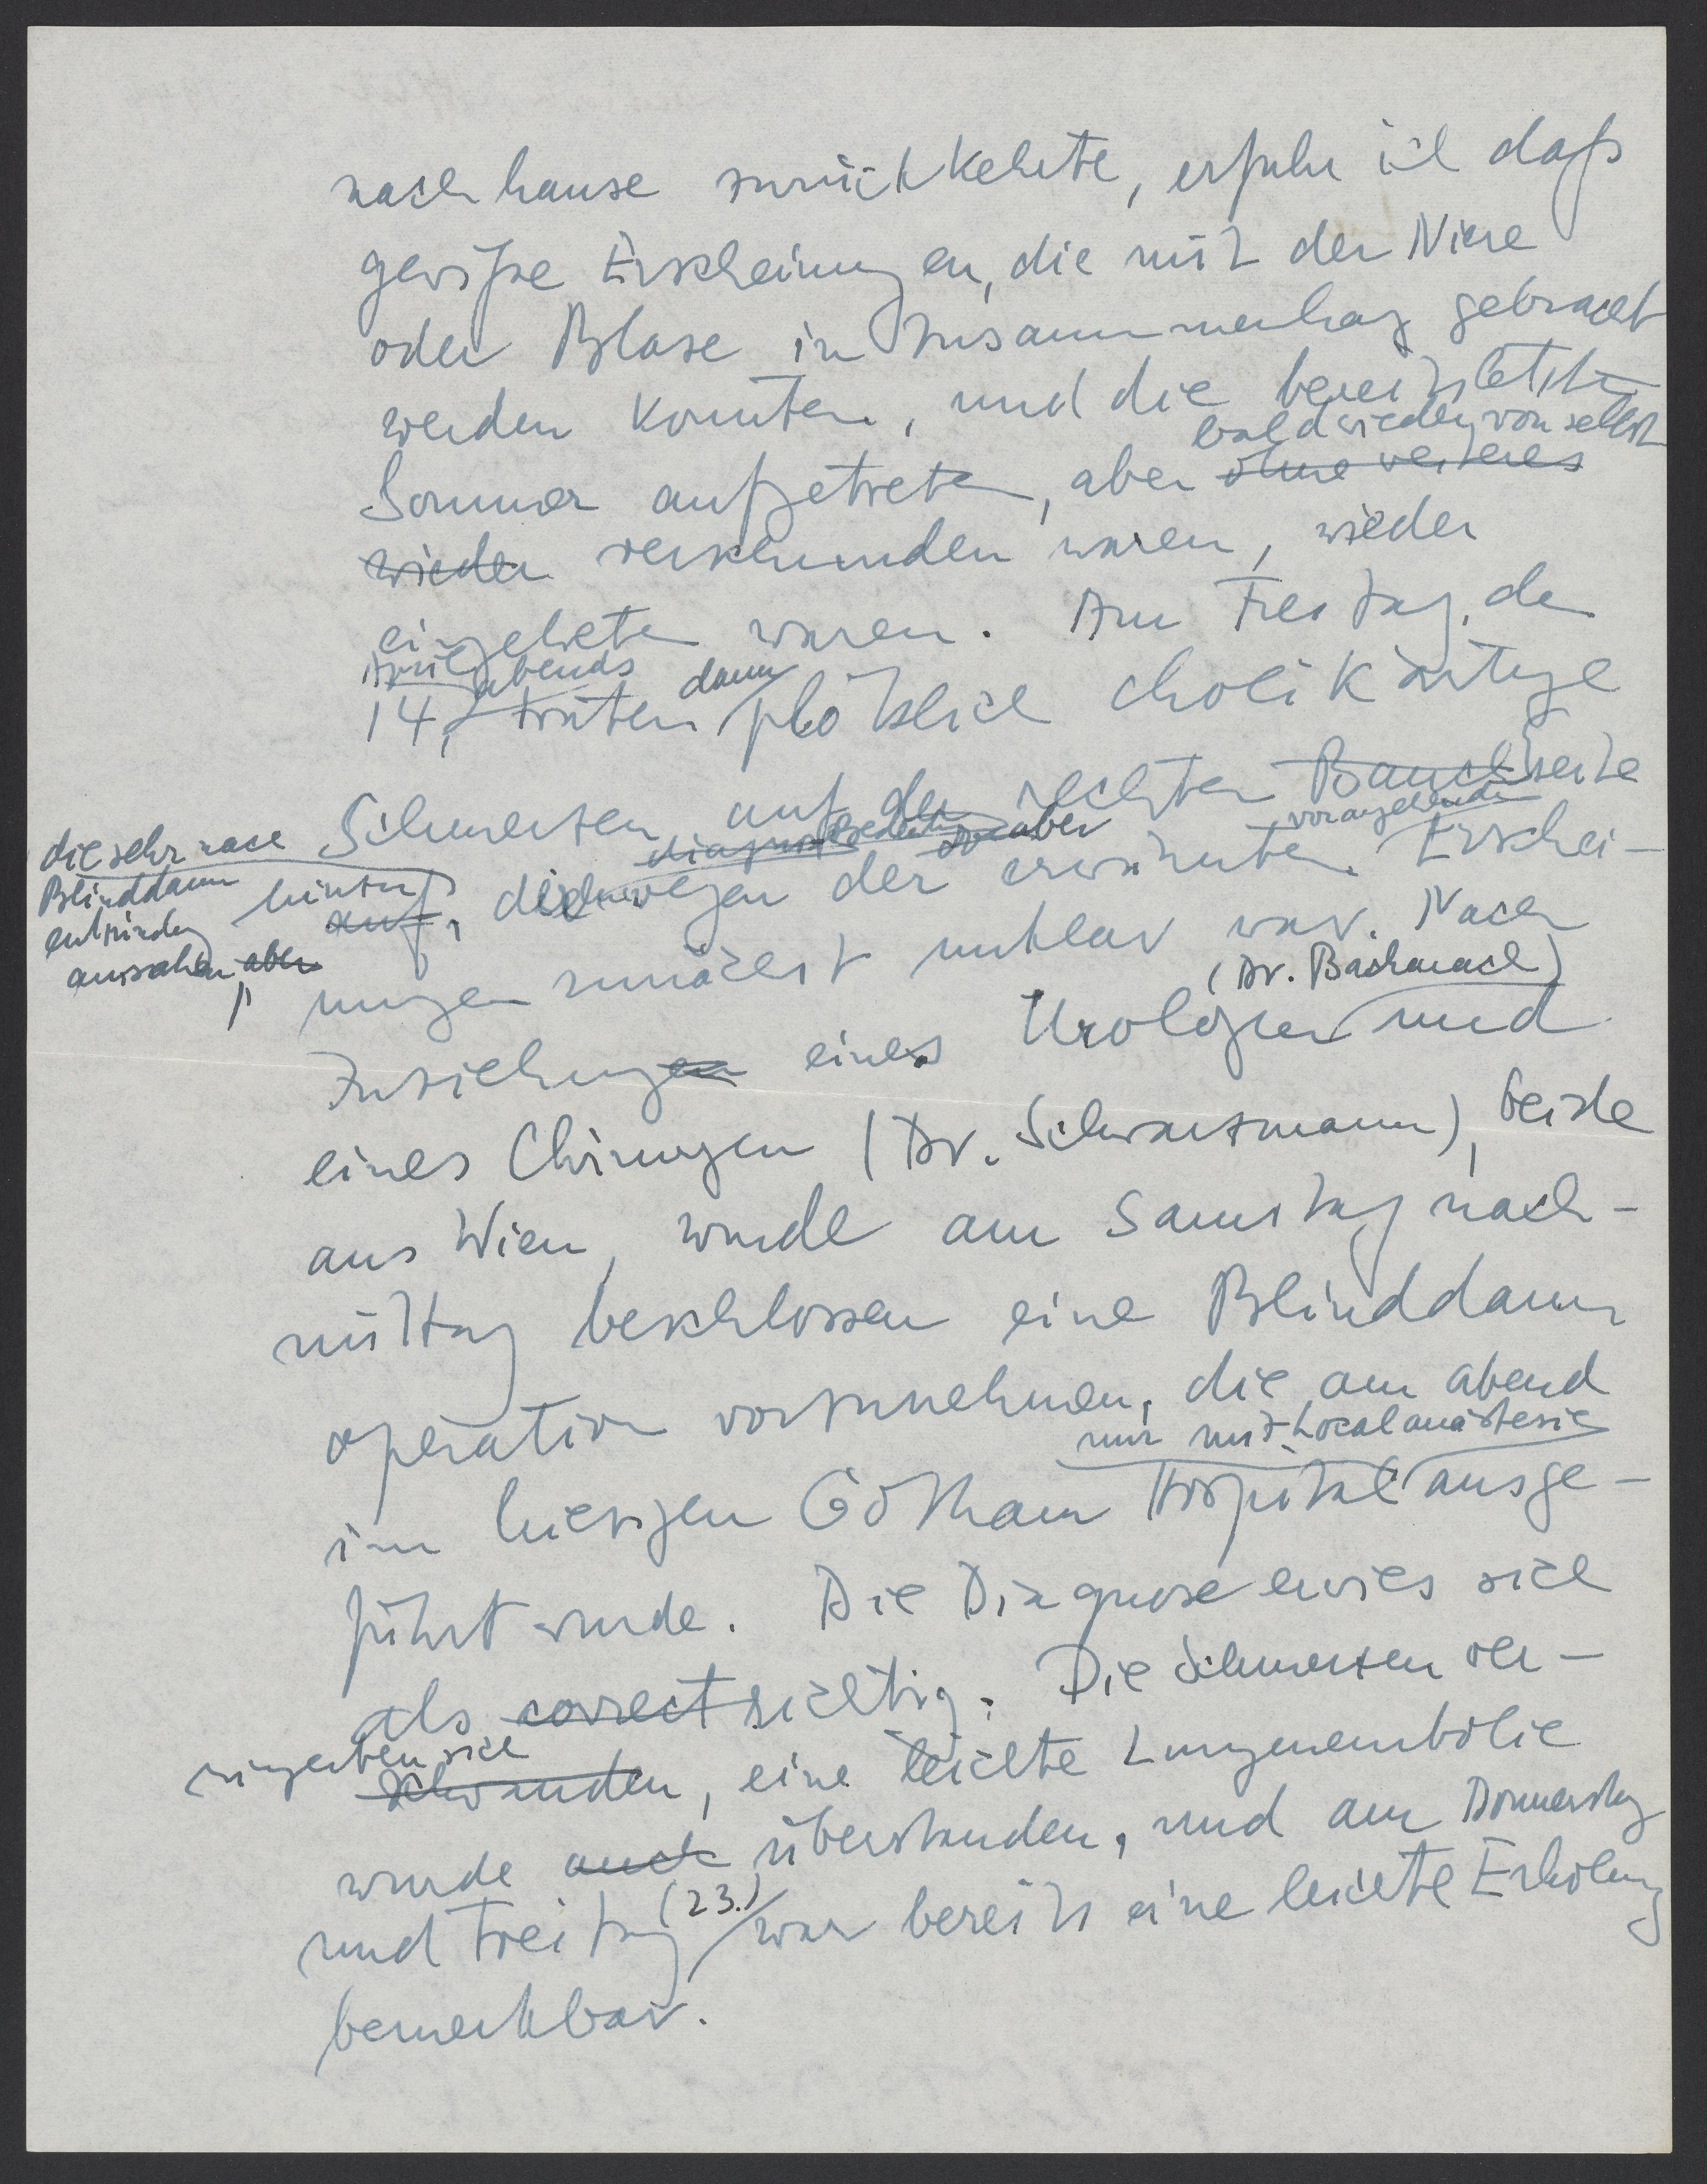 nach hause zurückkehrte, erfuhr ich daß
gewiße Erscheinungen, die mit der Niere
oder Blase in Zusammenhang gebracht
werden konnten, und die bereits letzten
bald wieder von selbst
Sommer aufgetreten, aber ohne weiteres
wieder verschwunden waren, wieder
eingetreten waren. Am Freitag, den
April abends dann
14, traten plötzlich cholikartige
Schmerzen auf der rechten Bauchseite
die sehr nach
Blinddarm
entzündung
aussahen, aber
aber vorangehenden
hinzu auf, die wegen der erwähnten Erschei-
nungen zunächst unklar war. Nach
(Dr. Bachrach)
Zuziehungen eines Urologen und
eines Chirurgen (Dr. Schwarzmann), beide
aus Wien, wurde am Samstag nach-
mittag beschlossen eine Blinddarm
operation vorzunehmen, die am abend
nur mit Localanästesie
im hiesigen Gotham Hospital ausge-
führt wurde. Die Diagnose erwies sich
als correct richtig. Die Schmerzen ver-
ringerten sich
schwanden, eine leichte Lungenembolie
wurde auch überstanden, und am Donnerstag
und Freitag (23.) war bereits eine leichte Erholung
bemerkbar.